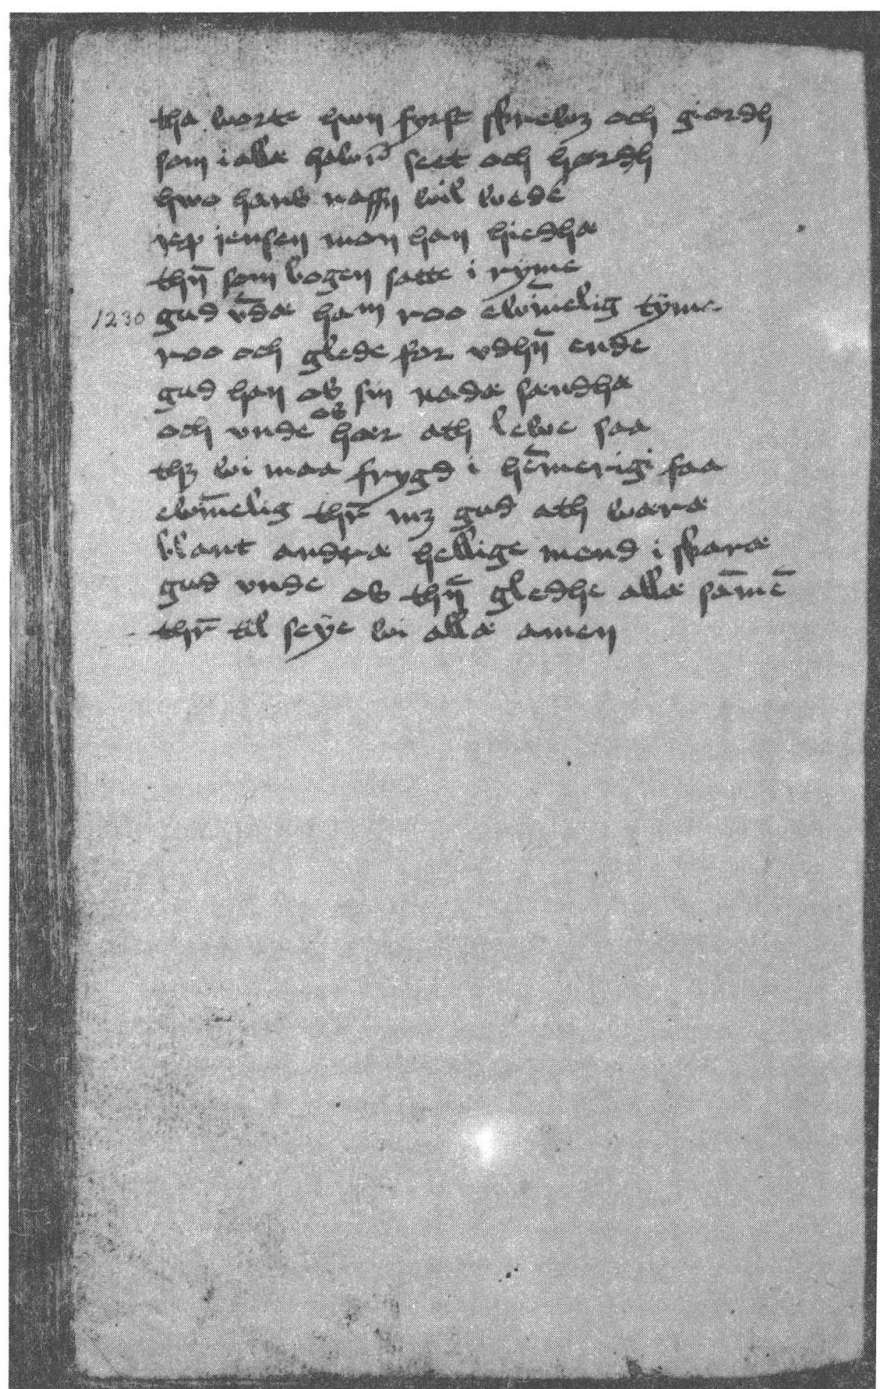 tha worte hwn fyrst skrewꝫ och giordh
som i allæ halwr̄ seet och hørdh
hwo hans naffn wil wede
jep jensen mon han hiedhæ
thn̄ som bogen satte i ryme
1230 gud v̄dæ ham roo ewīnelig tyme
roo och glede for vdhn̄ ende
gud han os sin nadæ sændhæ
och vnde os hær ath lewe saa
thꝫ wi maa frygd i hēmerigi faa
ewīnelig thr̄ mꝫ gud ath wæræ
blant andræ hellige mend i skaræ
gud vnde os thn̄ gledhe allæ sāmē
thr̄ til seÿe wi allæ amen